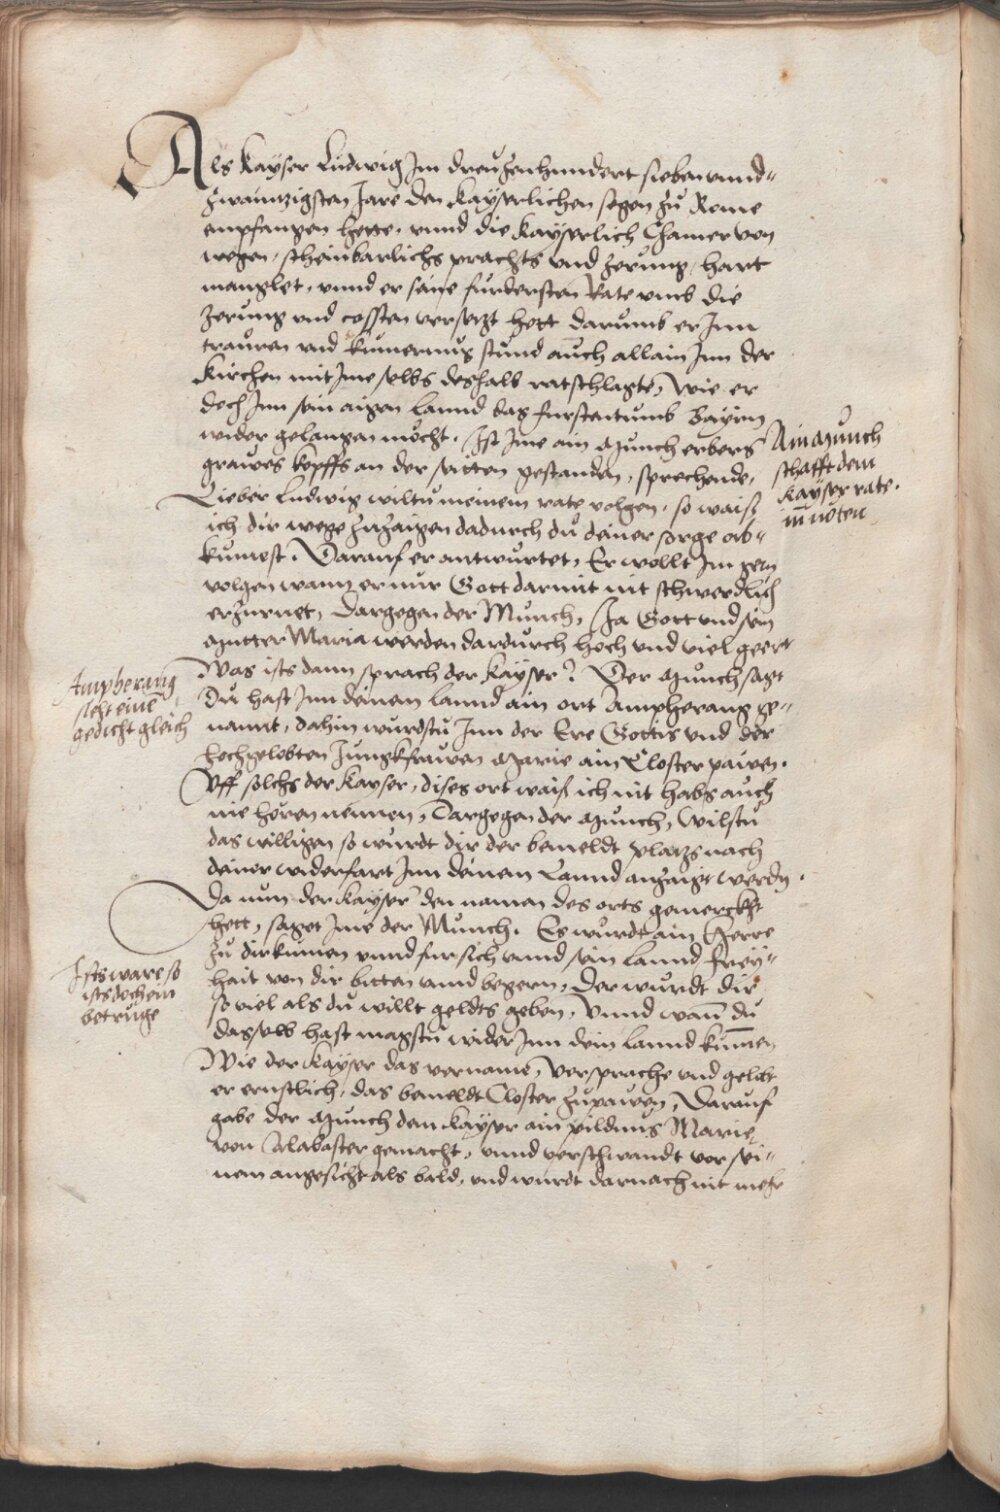 Als Kayser Ludwig Im dreuzenhundert siebenunnd-
zwaintzigsten Jare den Kayserlichen segen zu Rome
empfangen hette, unnd die Kayserlich Chamer von
wegen scheinbarlichs prachts und zerung hart
manglet, unnd er seine furdersten Rate umb die
zerung und cossten versetzt hett darumb er Inn
trauren und kumernus stund auch allain Inn der
Kirchen mit Ime selbs deshalb ratschlagte, wie er
doch Inn sein aigen lannd das furstentumb Bayrn
wider gelangen möcht. Ist Ime ain Munch erbers
grawes kopffs an der seitten gestanden, sprechende,
Lieber Ludwig wiltu meinem rate volgen, so waiß
ich dir wege zuzaigen dadurch du deiner sorge ab-
kumest. Darauf er antwurtet, Er wollt Im gern
volgen wann er nur Gott darmit nit schwerdlich
erzurnet, Dargegen der Munch, Ja Gott und sein
Mutter Maria werden dardurch hoch und viel geert
Was ists dann sprach der Kayser? Der Munch sagt
Du hast Inn deinem lannd ain ort Ampherang ge-
nannt, dahin wurdstu Inn der Ere Gottis und der
hochgelobten Jungkfrawen Marie ain Closter pawen.
Uff solchs der Kayser, dises ort waiß ich nit habs auch
nie hören nennen, Dargegen der Munch, Wilstu
das willigen so wurdt dir der bemeldt platzs nach
deiner widerfart Inn deinem Lannd anzaigt werdn.
Da nun der Kayser den namen des orts gemerckht
hett, saget Ime der Munch. Es wurdt ain Herre
zu dir kumen unnd fur sich unnd sein lannd frey-
hait von dir bitten unnd begern, Der wurdt dir
so viel als du willt geldts geben, Unnd wann du
dasselb hast magstu wider Inn dein lannd kumen
Wie der Kayser das vername, Versprache und gelobt
er ernstlich, das bemeldt Closter zupawen, Darauf
gabe der Munch dem Kayser ain pildnus Marie
von Alabaster gemacht, unnd verschwandt vor sei-
nem angesicht als bald, und wurdt darnach nit mehr
Ain Munch
schafft dem
Kayser rate
in nöten
Ampherang
sicht einē
gedicht gleich
Ists ware so
ists doch ein
betruge